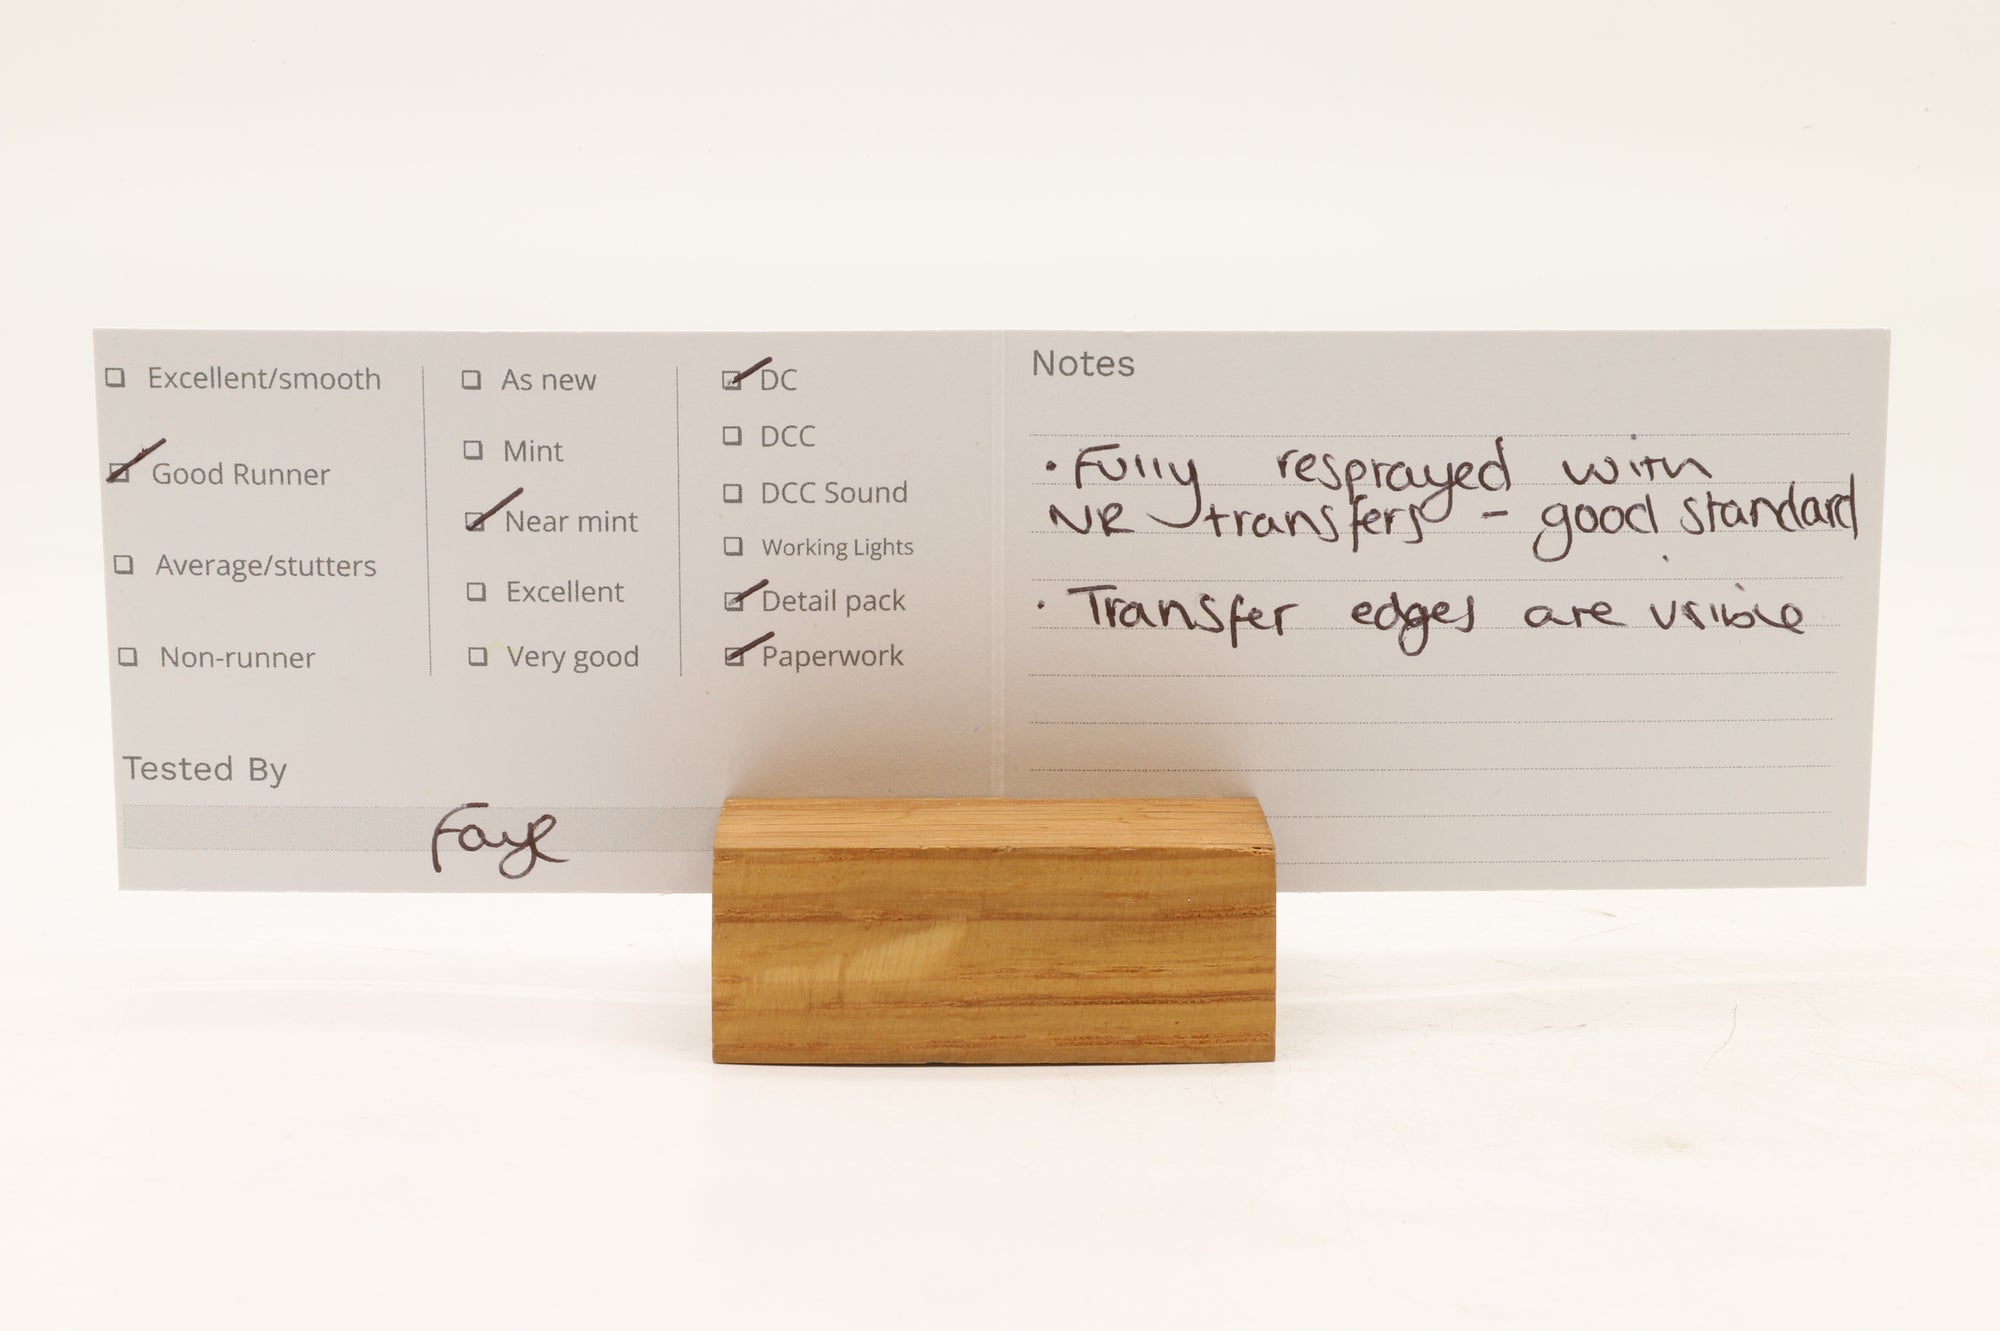 Excellent/smooth
Good Runner
Average/stutters
Non-runner
As new
Mint
Near mint
Excellent
Very good
DC
DCC
DCC Sound
Working Lights
Detail pack
Paperwork
Tested By
Faye
Notes
• Fully resprayed with
NR transfers - good standard
• Transfer edges are visible